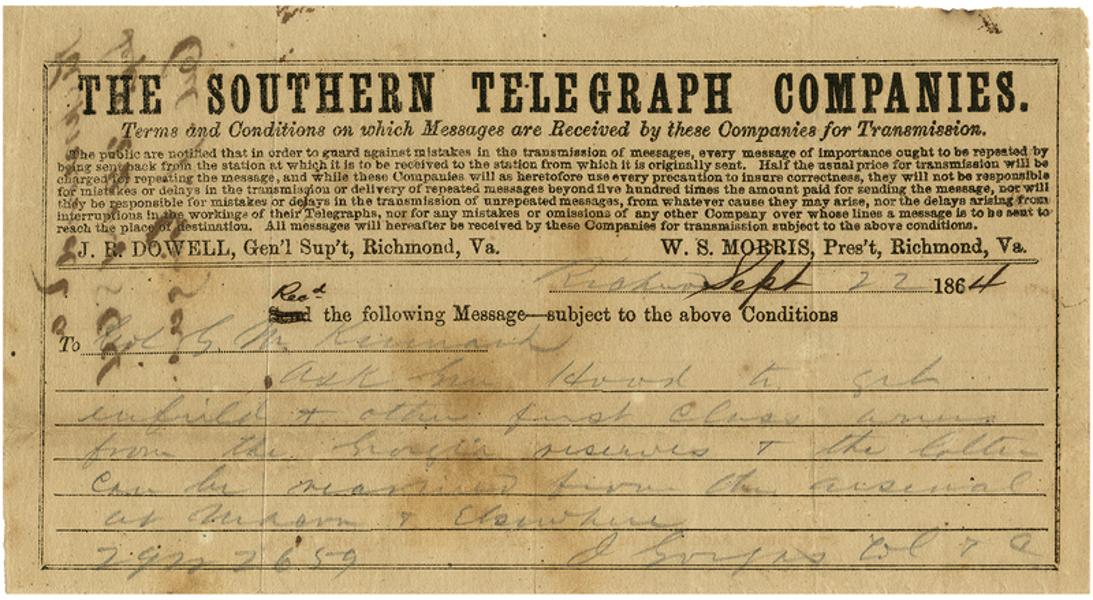 THE SOUTHERN TELEGRAPH COMPANIES.
Terms and Conditions on which Messages are Received by these Companies for Transmission.
The public are notified that in order to guard against mistakes in the transmission of messages, every message of importance ought to be repeated by
being sent back from the station at which it is to be received to the station from which it is originally sent. Half the usual price for transmission will be
charged for repeating the message, and while these Companies will as heretofore use every precaution to insure correctness, they will not be responsible
for mistakes or delays in the transmission or delivery of repeated messages beyond five hundred times the amount paid for sending the message, nor will
they be responsible for mistakes or delays in the transmission of unrepeated messages, from whatever cause they may arise, nor the delays arising from
interruptions in the workings of their Telegraphs, nor for any mistakes or omissions of any other Company over whose lines a message is to be sent to
reach the place of destination. All messages will hereafter be received by these Companies for transmission subject to the above conditions.
J. R. DOWELL, Gen'l Sup't, Richmond, Va. W. S. MORRIS, Pres't, Richmond, Va.
Sept 22 1864
Recd
Send the following Message—subject to the above Conditions
To Col G. M.
Ask Genl Hood to get
enfield & other first class arms
from the Georgia reserves & the latter
can be rearmed from the arsenal
at Macon & Elsewhere
J Gorgas Col & C